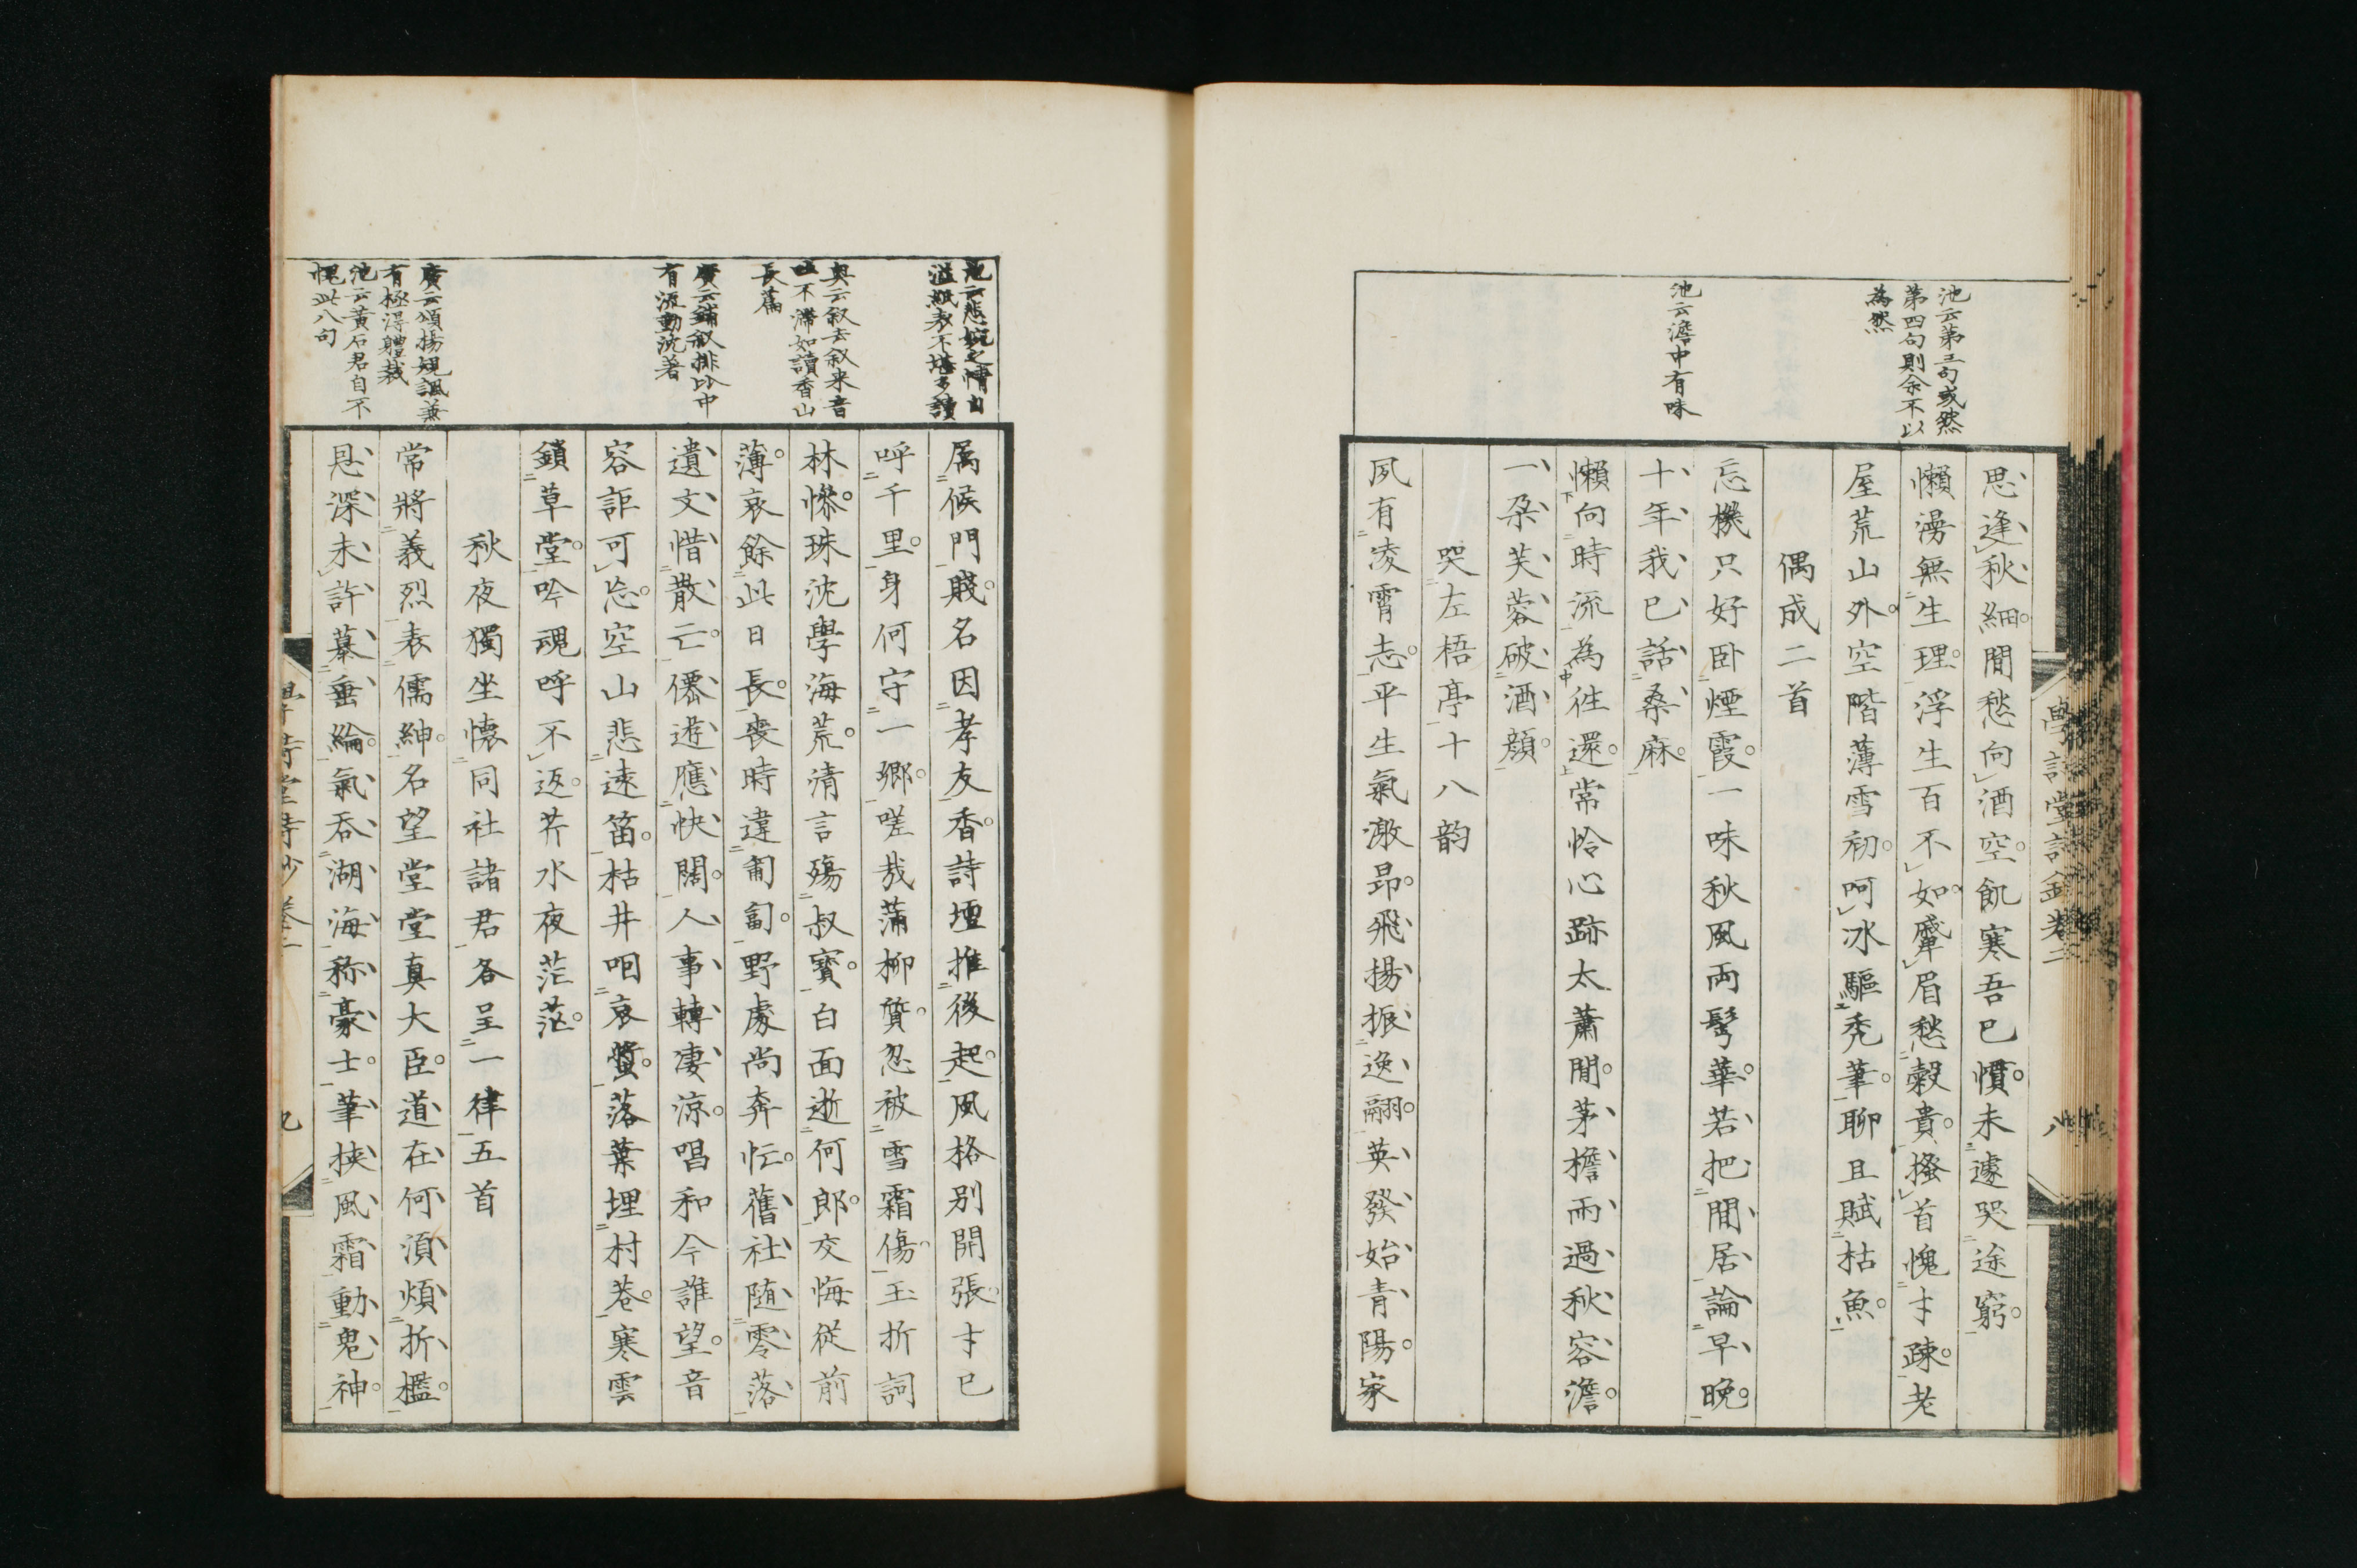 池云第三句或然
第四句則余不以
為然
池云澹中有味
思逢秋細閒愁向酒空飢寒吾已慣未遽哭途窮
懶漫無生理浮生百不如顰眉愁穀貴搔首愧才疎老
屋荒山外空階薄雪初呵冰驅禿筆聊且賦枯魚
偶成二首
忘機只好臥煙霞一味秋風両鬢華若把閒居論早晚
十年我已話桑麻
懶向時流為徃還常怜心跡太蕭閒茅檐雨過秋容澹
一朶芙蓉破酒顔
哭左梧亭十八韵
夙有凌霄志平生氣激昂飛揚振逸翮英發始青陽家
池云悲婉之情自
溢紙表不堪多讀
奥云叙去叙来音
吐不滞如讀香山
長篇
廣云鋪叙排比中
有流動沈著
廣云頌揚規諷兼
有極得體裁
池云黄石君自不
愧此八句
属候門賤名因孝友香詩壇推後起風格别開張才已
呼千里身何守一郷嗟哉蒲柳質忍被雪霜傷玉折詞
林惨珠沈學海荒清言殤叔寳白面逝何郎交悔従前
薄哀餘此日長喪時違匍匐野處尚奔忙舊社随零落
遺文惜散亡僊遊應快闊人事轉凄涼唱和今誰望音
容詎可忘空山悲遠笛枯井咽哀螿落葉埋村巷寒雲
鎖草堂吟魂呼不返芥水夜茫茫
秋夜獨坐懐同社諸君各呈一律五首
常將義烈表儒紳名望堂堂真大臣道在何須煩折檻
恩深未許慕垂綸氣呑湖海称豪士筆挟風霜動鬼神